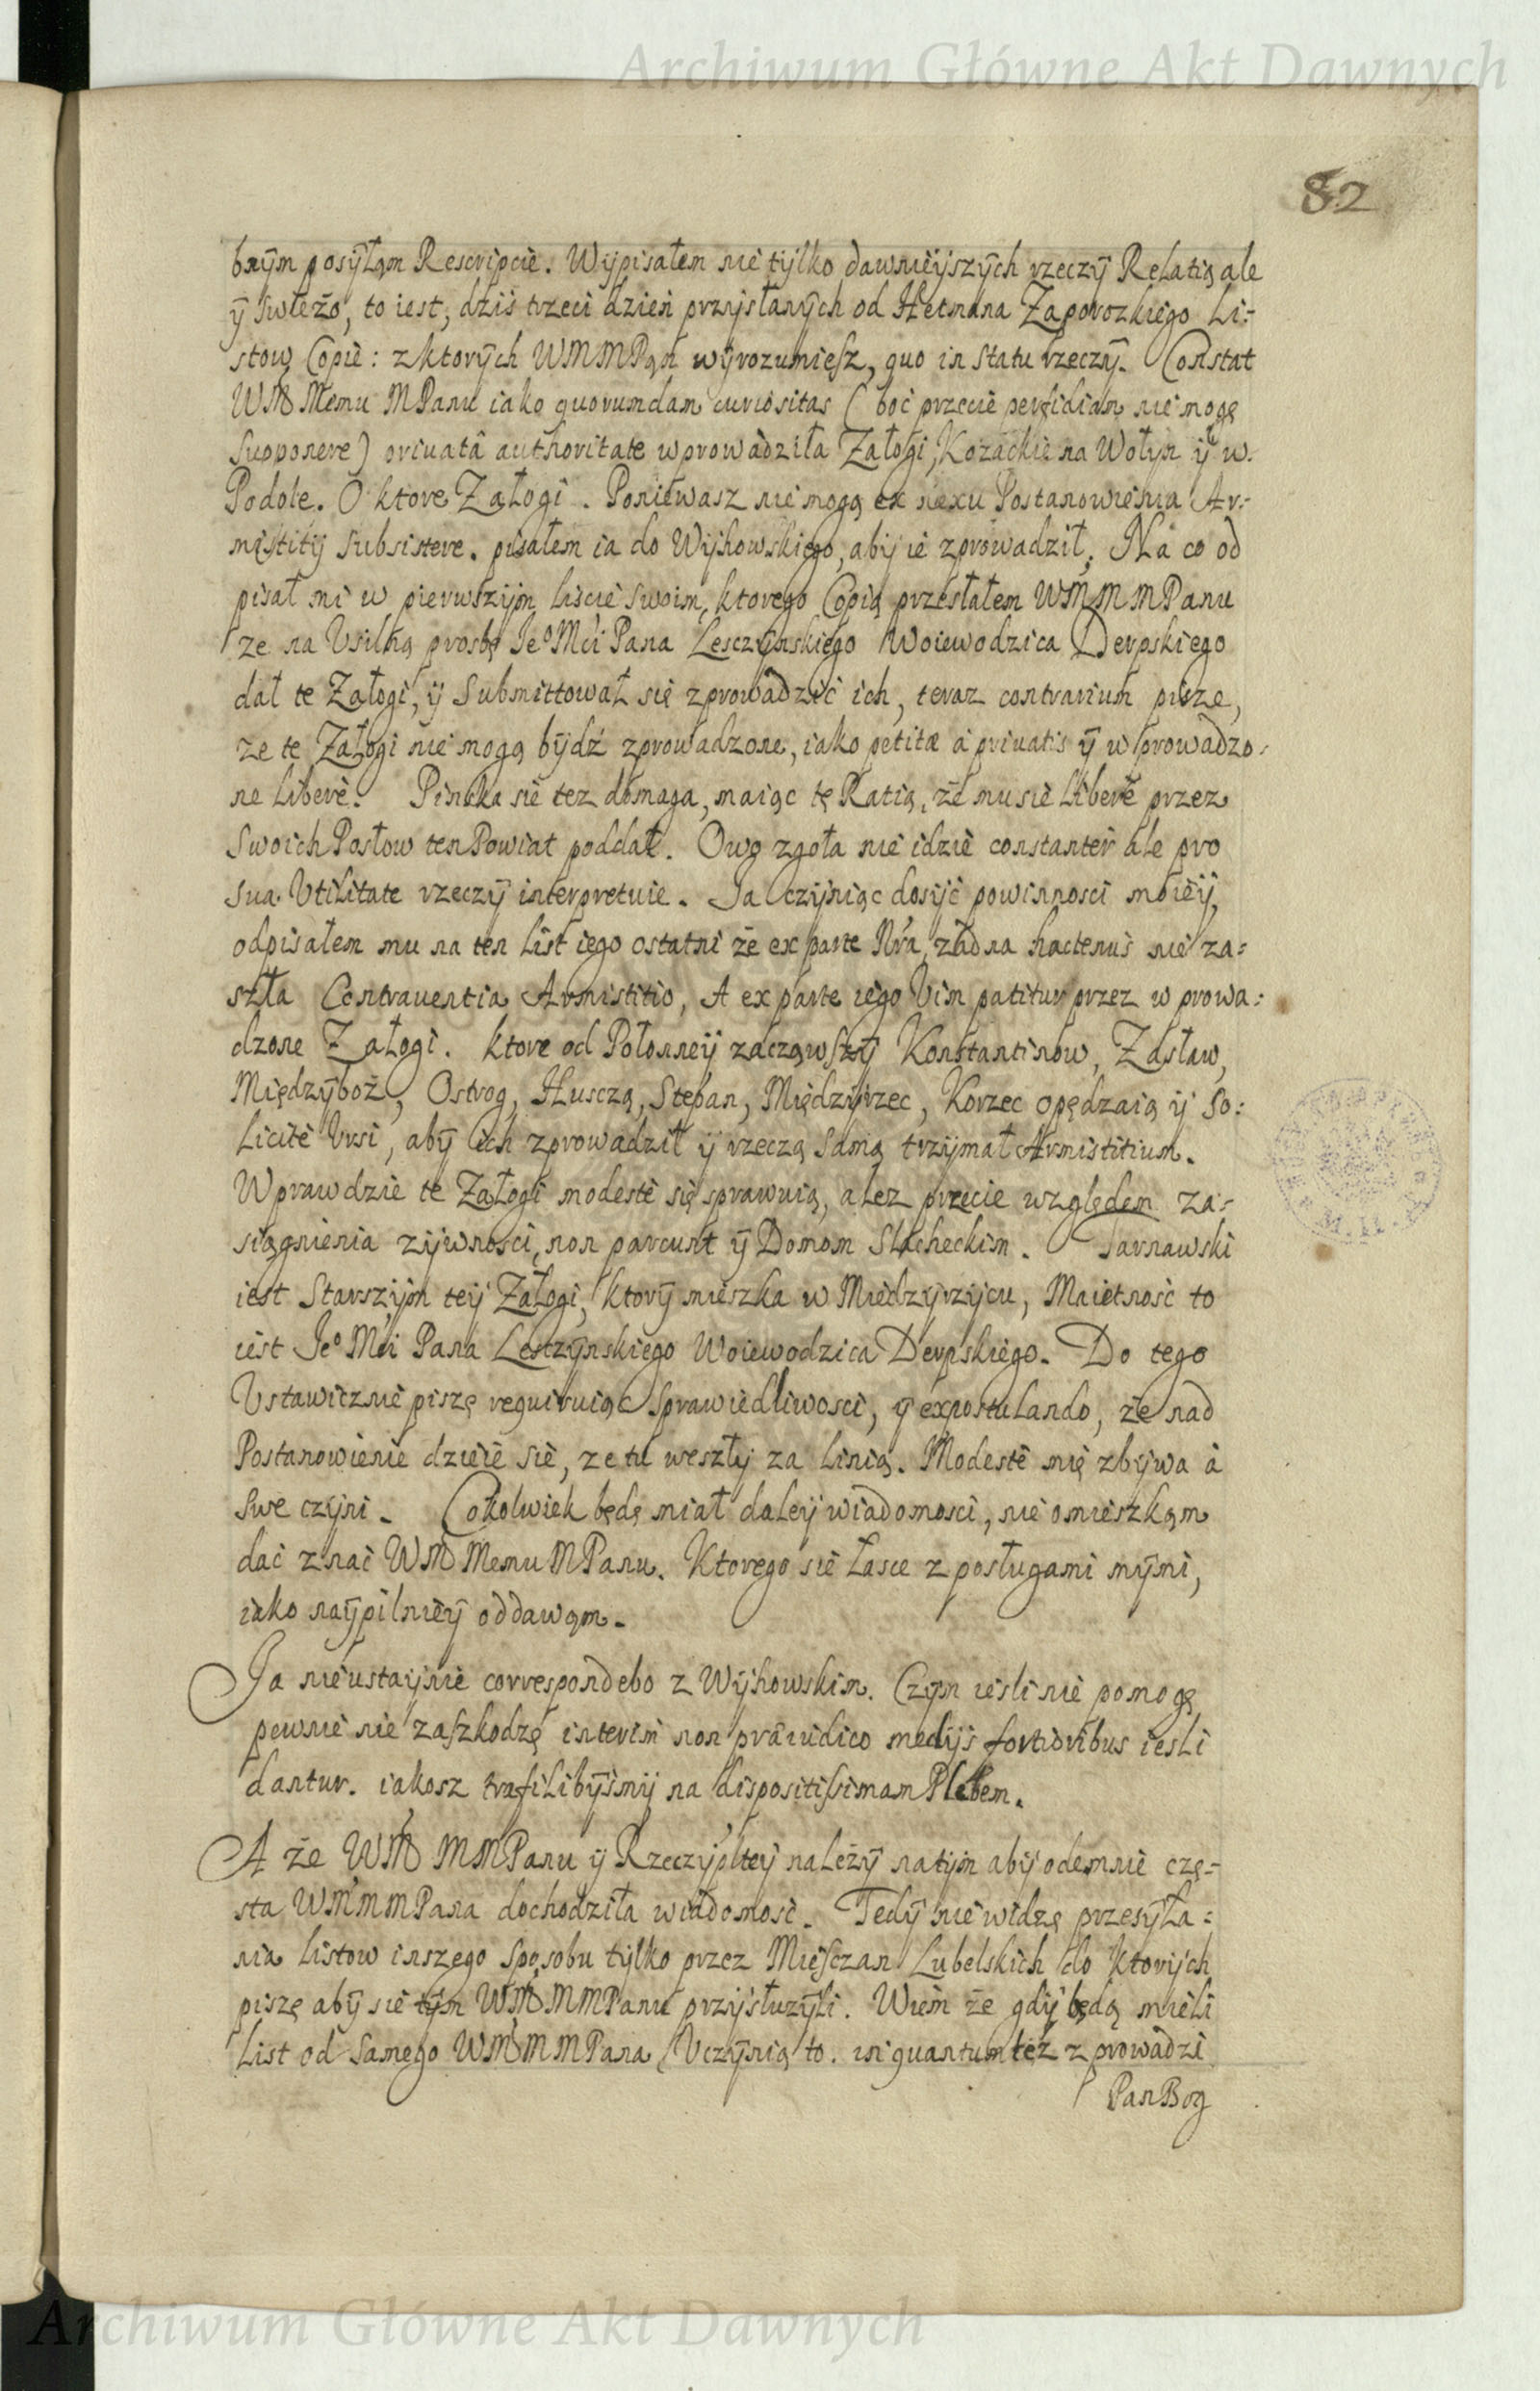 Archiwum Główne Akt Dawnych
82
bnym posyłąm Rescripcie. Wypisałem nie tylko dawnieyszych rzeczy Relatią ale
y swieżo, to iest, dziś trzeci dzień przysłanych od Hetmana Zaporozkiego Li:-
stow Copie: z ktorych WMMPan wyrozumiesz, quo in statu rzeczy. Constat
WM Memu MPanu iako quorumdam curiositas ( boć przecie perfidiam nie mogę
supponere) priuatâ authoritate wprowadziła Załogi, Kozackie na Wołyn y w.
Podole. O ktore Załogi. Poniewasz nie mogą ex nexu Postanowienia Ar:-
mistitij subsistere. pisałem ia do Wyhowskiego, aby ie zprowadził, Na co od
pisał mi w pierwszym liscie swoim, ktorego Copią przesłałem WMMMPanu
ze na Usilną prosbę Je⁰ Mći Pana Lesczynskiego Woiewodzica Derpskiego
dał te Załogi, y Submittował się zprowadzić ich, teraz contrarium pisze,
ze te Załogi nie mogą bydź zprowadzone, iako petitæ à priuatis y w prowadzo:
ne liberè. Pinska sie tez domaga, maiąc tę Ratią, że mu sie liberè przez
Swoich Posłow ten Powiat poddał. Owo zgoła nie idzie constanter ale pro
sua Utilitate rzeczy interpretuie. Ja czyniąc dosyć powinnosci moiey,
odpisałem mu na ten list iego ostatni że ex parte Nra, żadna hactenus nie za=
szła Contrauentia Armistitio, A ex parte iego Vim patitur przez w prowa:
dzone Załogi. ktore od Połonney zacząwszy Konstantinow, Zasław,
Międzyboż, Ostrog, Husczą, Stepan, Międzyrzec, Korzec opędzaią y So:
licitè Ursi, aby ich zprowadził y rzeczą samą trzymał Armistitium.
Wprawdzie te Załogi modestè się sprawuią, alez przecie względem za-
siągnienia zywnosci, non parcunt y Domom Slacheckim. Tarnawski
iest Starszym tey Załogi, ktory mieszka w Miedzyrzycu, Maietnosc to
iest Je⁰ Mći Pana Lesczynskiego Woiewodzica Derpskiego. Do tego
Ustawicznie piszę requiruiąc sprawiedliwosci, y expostulando, że nad
Postanowienie dzieie sie, ze tu weszły za Linią. Modestè mię zbywa à
swe czyni. Cokolwiek będę miał daley wiadomosci, nie omieszkąm
dać znać WM Memu MPanu. Ktorego sie łasce z posługami mymi,
iako naypilniey oddawąm.
Ja nieustaynie correspondebo z Wyhowskim. Czym iesli nie pomogę
pewnie nie zaszkodzę interim non præiudico medijs fortioribus iesli
dantur. iakosz trafilibyśmy na dispositissimam Plebem.
A że WM MMPanu y Rzeczyplitey należy na tym aby odemnie czę-
sta WMMMPana dochodziła wiadomosć. Tedy nie widzę przesyła=
nia listow inszego sposobu tylko przez Miesczan Lubelskich do ktorych
piszę aby sie tym WMMMPanu przysłużyli. Wiem że gdy będą mieli
List od samego WMMMPana Uczynią to. in quantum też z prowadzi
Pan Bog
Archiwum Główne Akt Dawnych